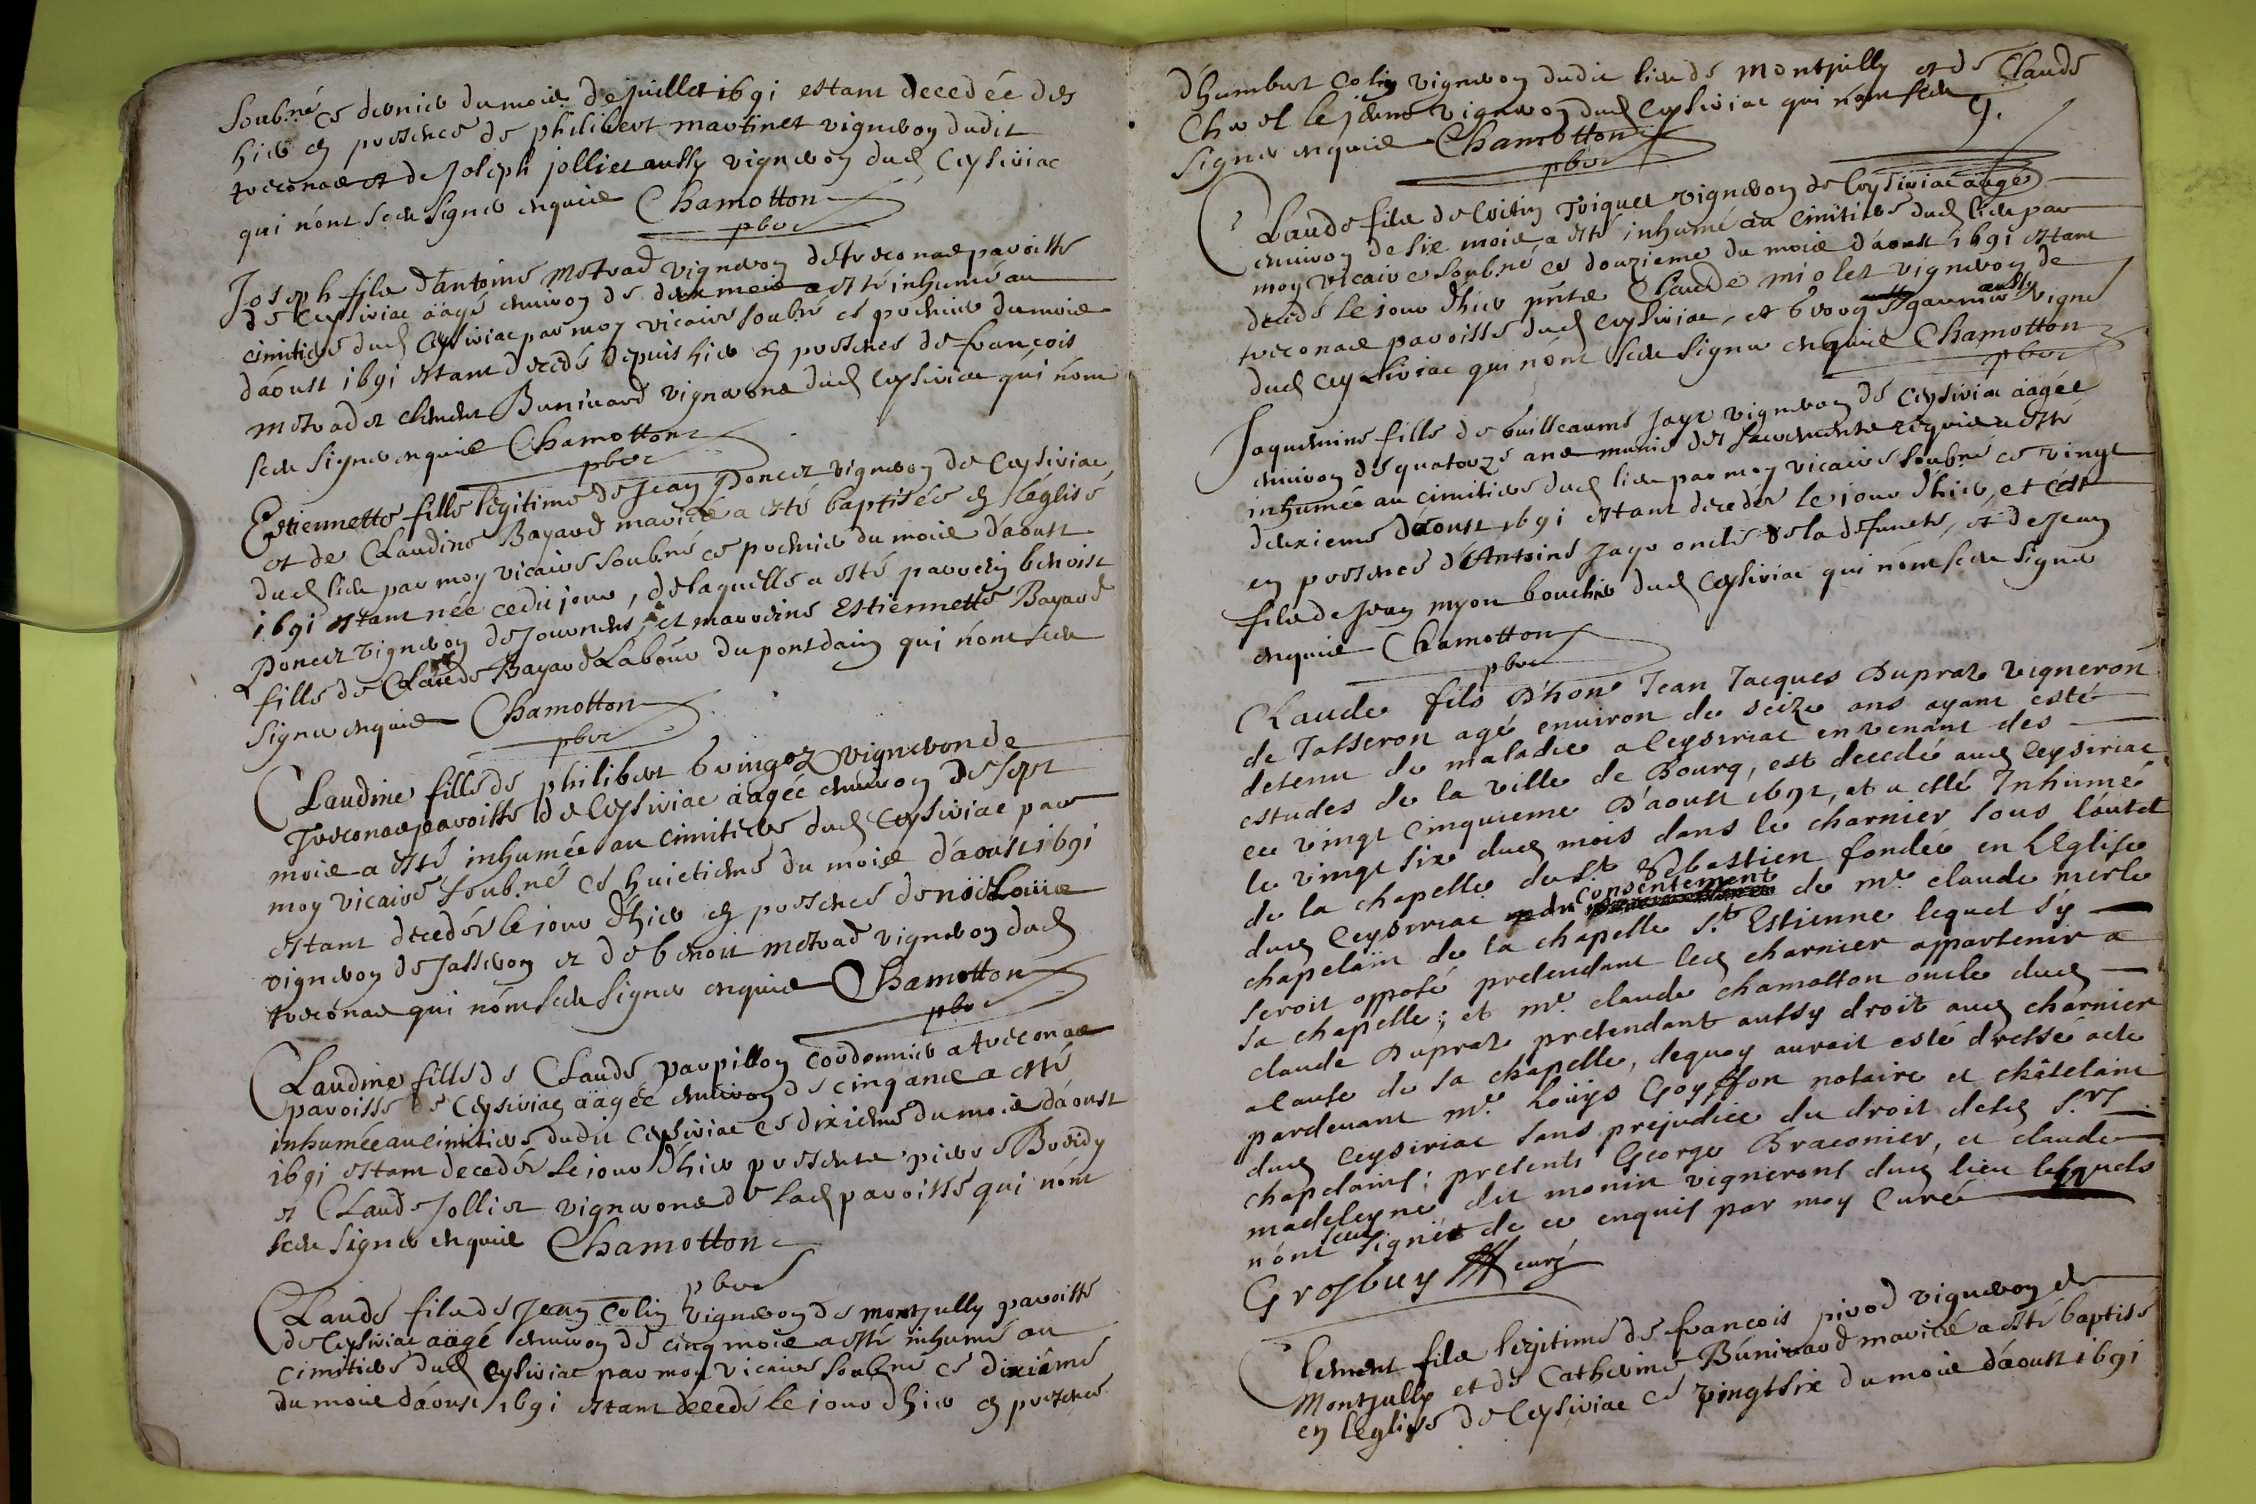 soub.né ce dernier du mois de juillet 1691 estant decedée des
hier en presence de philibert martinet vigneron dudit
treconas et de Joseph jolliet aussy vigneron dud Ceysiriac
qui n'ont sceu signer enquis Chamotton
pbre
Joseph fils d'antoine metrad vigneron de treconas paroisse
de Ceysiriac aagé environ de deux mois a esté inhumé au
cimitiere dud Ceysiriac par moy vicaire soubné ce premier du mois
d'aoust 1691 estant decedé depuis hier en presence de françois
metrad et clement Bunivard vignerons dud Ceysiriac qui n'ont
sceu signer enquis Chamotton
pbre
Estiennette fille legitime de Jean Poncet vigneron de Ceysiriac
et de Claudine Bayard mariée a esté baptisée en l'église
dud lieu par moy vicaire soubné ce premier du mois d'aoust
1691 estant née cedit jour, de laquelle a esté parrein benoist
Poncet vigneron de Journens, et marreine Estiennette Bayard
fille de Claude Bayard Labour du pontdain qui n'ont sceu
signer enquis Chamotton
pbre
Claudine fille de philibert Gringoz vigneron de
Treconas paroisse de Ceysiriac aagée environ de sept
mois a esté inhumée au cimitiere dud Ceysiriac par
moy vicaire soub.né ce huictieme du mois d'aoust 1691
estant decedée le jour d'hier en presence de noël Louis
vigneron de Jasseron et de benoit metrad vigneron dud
treconas qui n'ont sceu signer enquis Chamotton
pbre
Claudine fille de Claude parpillon cordonnier a treconas
paroisse de Ceysiriac aagée environ de cinq ans a esté
inhumée au cimitiere dudit Ceysiriac ce dixieme du mois d'aoust
1691 estant decedée le jour d'hier presents pierre Brevidy
et Claude Jolliet vignerons de lad paroisse qui n'ont
sceu signer enquis Chamotton
pbre
Claude fils de Jean Colin vigneron de montjully paroisse
de Ceysiriac aagé environ de cinq mois a esté inhumé au
cimitiere dud Ceysiriac par moy vicaire soubné ce dixième
du mois d'aoust 1691 estant decedé le jour d'hier en presence
d'humbert Colin vigneron dudit lieu de montjully et de Claude
Chrel le jeune vigneron dud Ceysiriac qui n'ont sceu
signer enquis Chamotton
9.
pbre
Claude fils de Cristin Triquet vigneron de Ceysiriac aagé
environ de six mois a esté inhumé au cimitiere dud lieu par
moy vicaire soubné ce douzieme du mois d'aoust 1691 estant
decedé le jour d'hier pnts Claude miolet vigneron de
treconas paroisse dud Ceysiriac, et George garnier aussy vigne
dud Ceysiriac qui n'ont sceu signer enquis Chamotton
pbre
Jaquemine fille de Guilleaume Jayr vigneron de Ceysiriac aagée
environ de quatorze ans munie des sacrements requis a esté
inhumée au cimitiere dud lieu par moy vicaire soubné ce vingt
deuxieme d'aoust 1691 estant decedée le jour d'hier, et c'est
en presence d'Antoine Jayr oncle de la defuncte, et de Jean
fils de Jean myon boucher dud Ceysiriac qui n'ont sceu signer
enquis Chamotton
pbre
Claude fils d'hon Jean Jacques Dupraz vigneron
de Jasseron agé environ de seize ans ayant esté
detenu de maladie a Ceysiriac en venant des
estudes de la ville de Bourg, est decedé aud Ceysiriac
ce vingt cinquieme d'aoust 1691, et a esté Inhumé
le vingt six dud mois dans le charnier sous l'autel
de la chapelle de St. Sebastien fondée en L'Eglise
dud Ceysiriac du consentement de mre claude merle
chapelain de la chapelle St. Estienne lequel s'y
seroit opposé pretendant led charnier appartenir a
sa chapelle; et mre claude chamotton oncle dud
claude Dupraz pretendant aussy droit aud charnier
a cause de sa chapelle, dequoy auroit esté dressé acte
pardevant mre Loüys Goyffon notaire et châtelain
dud Ceysiriac sans prejudice du droit desd srs
chapelains; presents George Braconier, et claude
madeleyne dit monin vignerons dud lieu lesquels
n'ont sceu signer de ce enquis par moy Curé
Grosbuy curé
Clement fils legitime de francois pirod vigneron de
Montjully et de Catherine Bunivard mariée a esté baptisé
en l'eglise de Ceysiriac ce vingtsix du mois d'aoust 1691